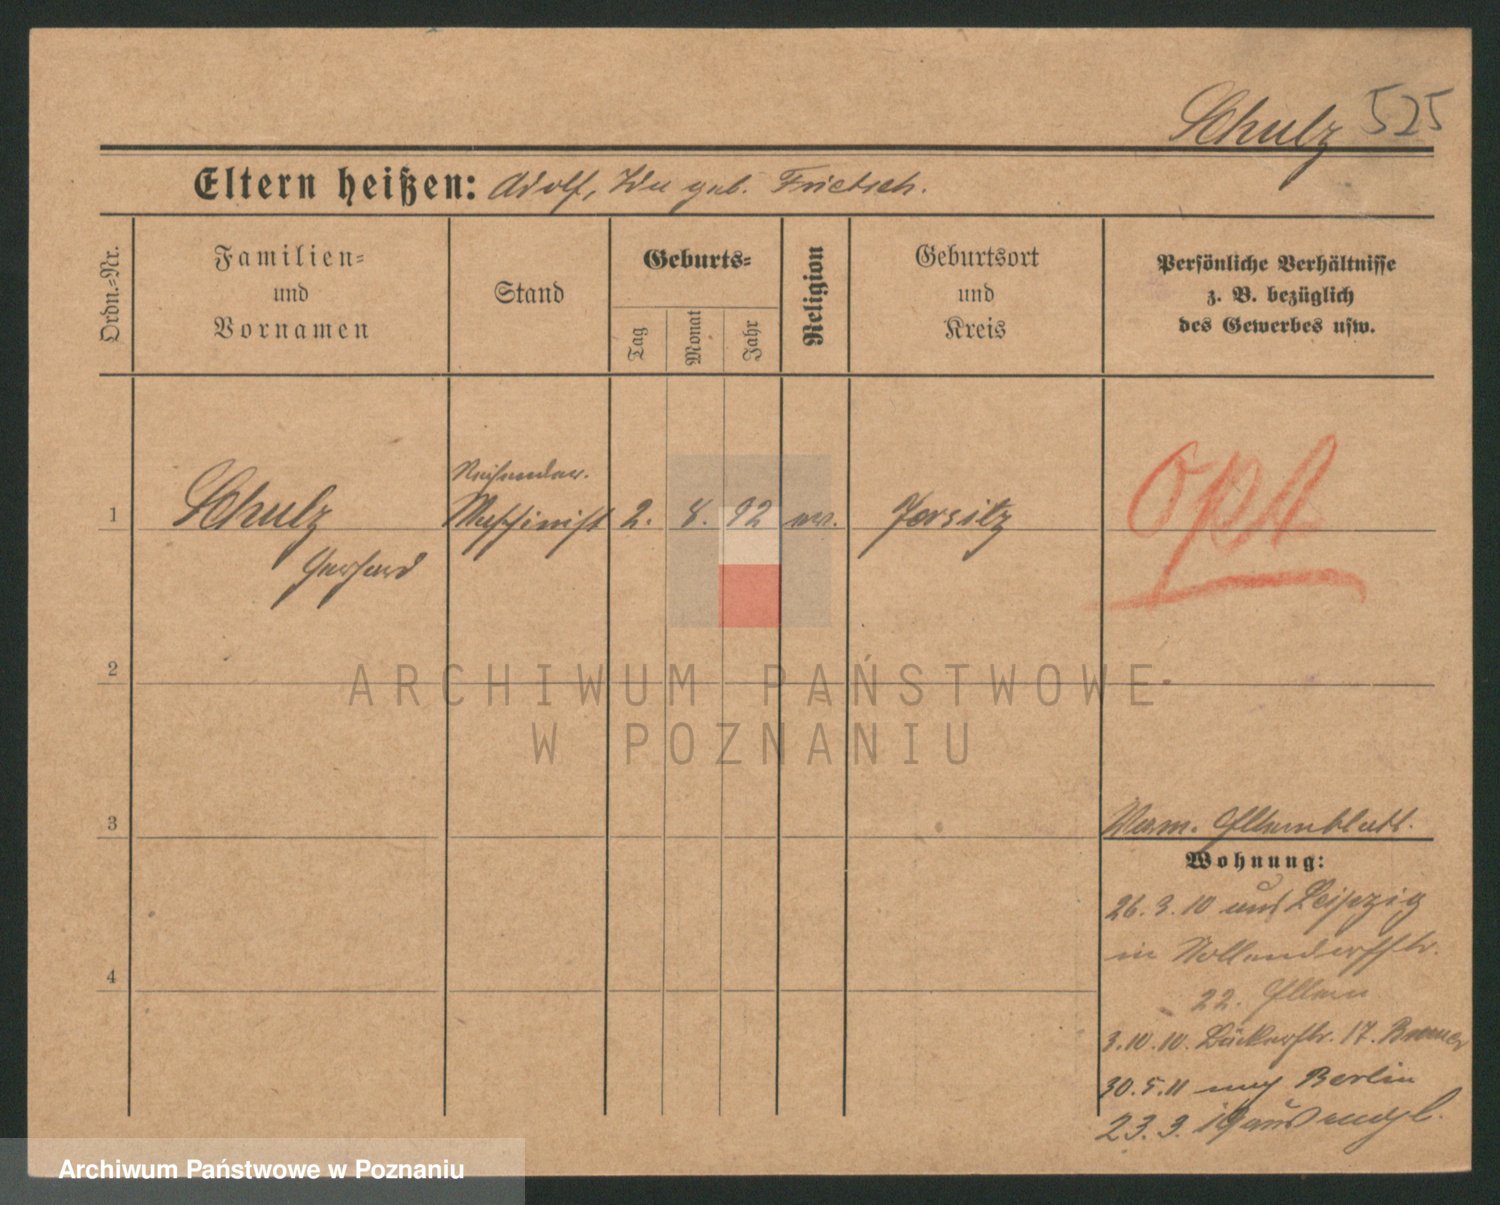 Schulz 525
Eltern heißen: Adolf, Ida geb. Frietsch.
Ordn.-Nr.
Familien-
und
Vornamen
Stand
Geburts-
Tag
Monat
Jahr
Religion
Geburtsort
und
Kreis
Persönliche Verhältnisse
z. B. bezüglich
des Gewerbes usw.
1 Schulz 2. 8. 92 ev. Jersitz
Gerhard
Opt
2
ARCHIWUM PAŃSTWOWE
W POZNANIU
3
Elternblatt.
Wohnung:
26.3.10 aus Leipzig
in Nollendorfstr.
22. Eltern
4
3.10.10. Bäckerstr. 17.
30.5.11 nach Berlin
23.3.
Archiwum Państwowe w Poznaniu